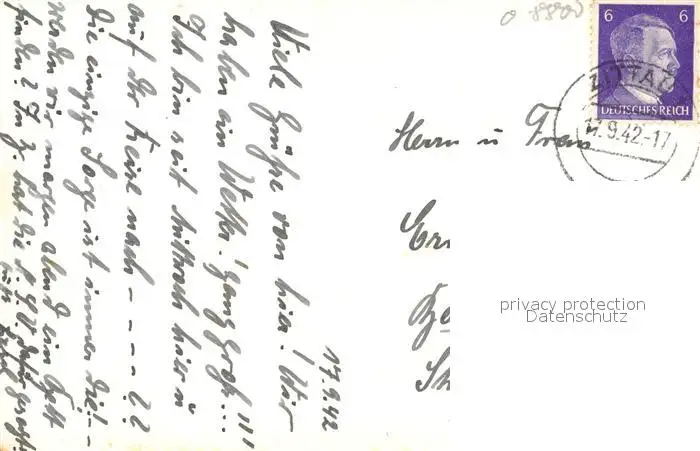 17.9.42
Viele Grüße von hier! Wir
haben ein Wetter! ganz groß...!!!
Ich bin seit Mittwoch hier u
auf der Reise nach - - - - - ??
Die einzige Sorge ist immer die! -
werden wir morgen abend ein Bett
finden? In Z. hat die
Herrn u Frau
6 6
DEUTSCHES REICH
ZITTAU
17.9.42.-17
privacy protection
Datenschutz